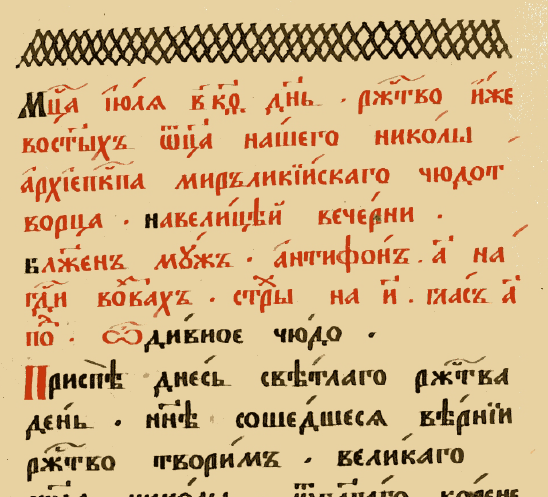 Мц҃а іюля в҃ кѡ днь . рж҃тво и́же
востыхъ ѿца́ на́шего николы
а́рхіеп҃кпа миръликїйскаго чюдот
ворца . навели́цѣй вече́рни .
бл҃же́нъ му́жъ . а҆нтифо́нъ . а҃ на
гд҇и во́вахъ . стры на и҃ . гла́съ а҃
по҇ . ѡ҆ диви́ое чю́до .
Приспѣ̀ дне́сь свѣ́тлаго рж҃тва
де́нь . нн҃ѣ соше́дшеся вѣ́рнїи
рж҃тво твори́мъ . вели́каго